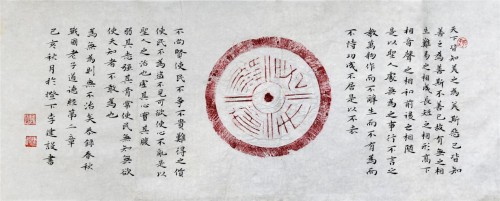 天下皆知美之為美斯惡已皆知
善之為善斯不善已故有無之相
生難易之相成長短之相形高下
相音聲之相和前後之相隨
是以聖人處無為之事行不言之
教萬物作而不辭生而不有為而
不恃功成不居是以不去
不尚賢使民不爭不貴難得之貨
使民不為盜不見可欲使心不亂是以
聖人之治也虛其心實其腹
弱其志強其骨常使民無知無欲
使夫知者不敢為也
為無為則無不治矣恭錄春秋
戰國老子道德經第二章
己亥秋月於燈下李建設書